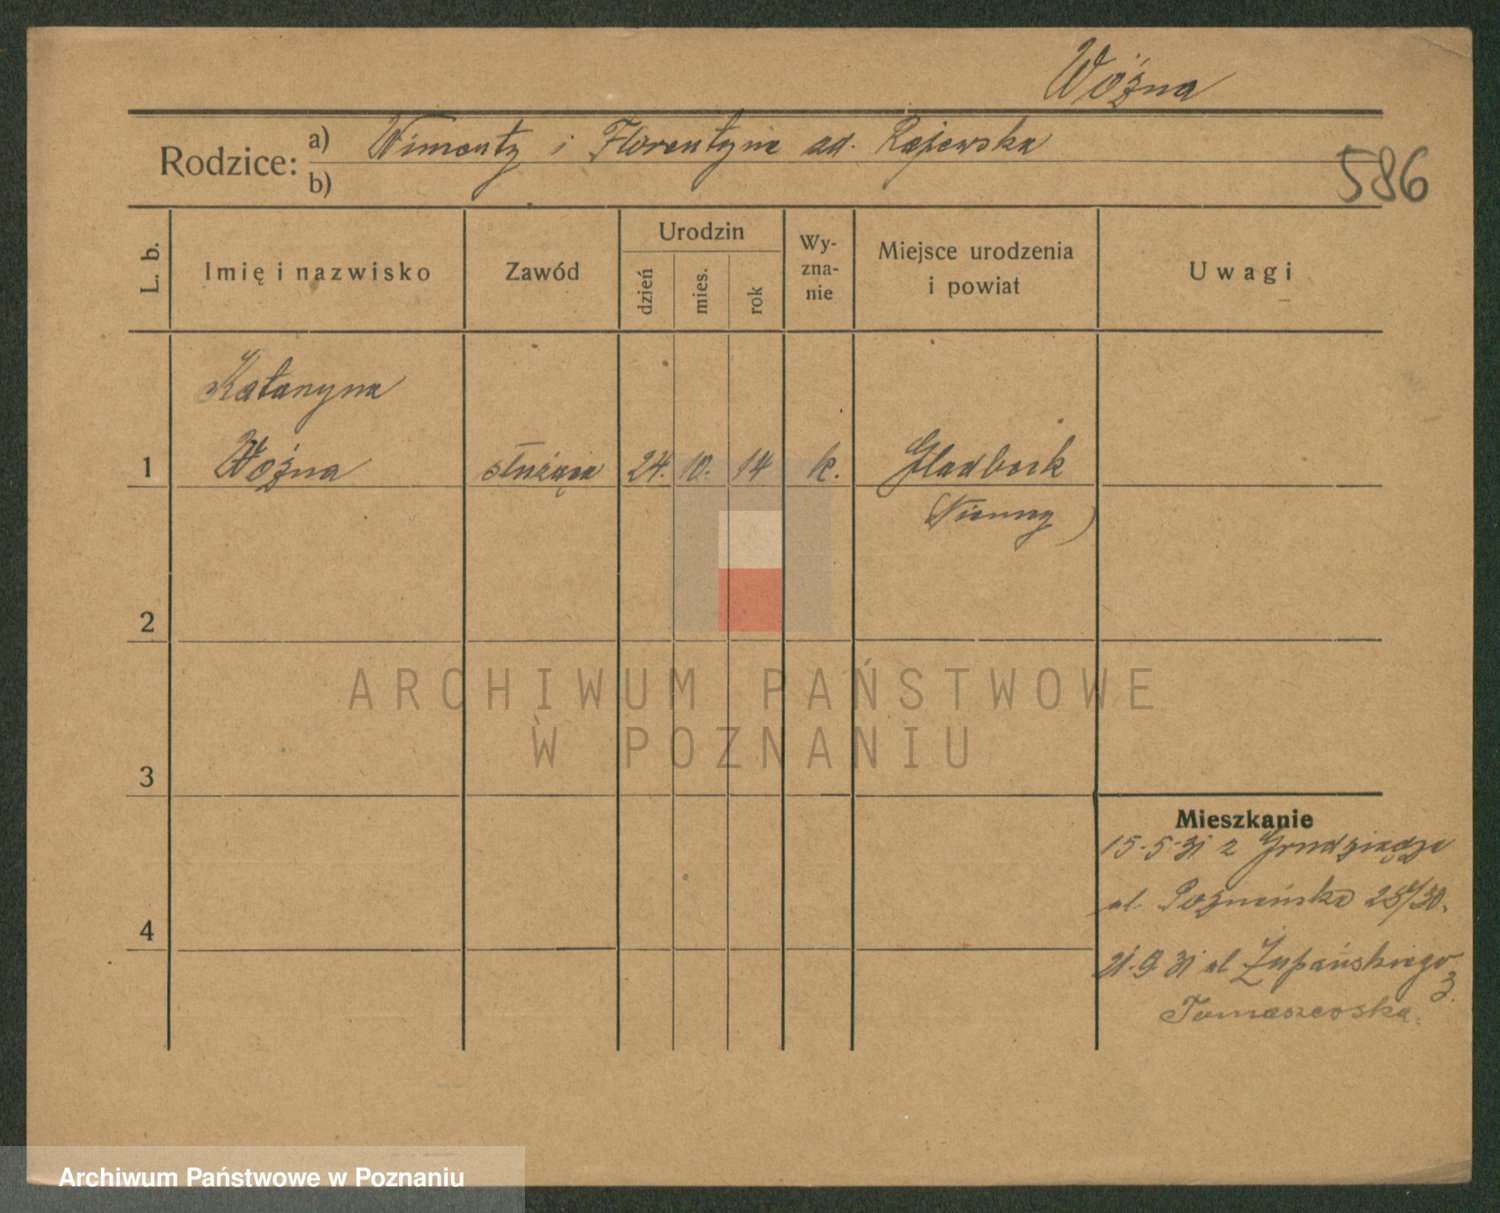 Woźna
Rodzice:
a) Wincenty i Florentyna ad. Rajewska
b)
586
L. b.
Imię i nazwisko
Zawód
Urodzin
dzień
mies.
rok
Wy-
zna-
nie
Miejsce urodzenia
i powiat
Uwagi
Katarzyna
1 Woźna służąca 24. 10. 14 k. Gladbeck
(Niemcy)
2
3
4
ARCHIWUM PAŃSTWOWE
W POZNANIU
Mieszkanie
15-5-31 z Grudziądza
ul. Poznańska 28/30.
21-9-31 ul Żupańskiego
3.
Tomaszewska
Archiwum Państwowe w Poznaniu